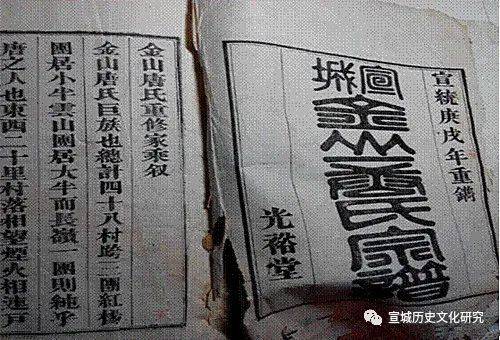 宣統庚戌年重鐫
宣城
金山唐氏宗譜
光裕堂
金山唐氏重修家乘叙
金山唐氏巨族也總計四十八村跨三團紅楊
團居小牛雲山團居大牛而長嶺一團則純乎
唐之人也東西二十里村落相望煙火相連戶
宣城历史文化研究